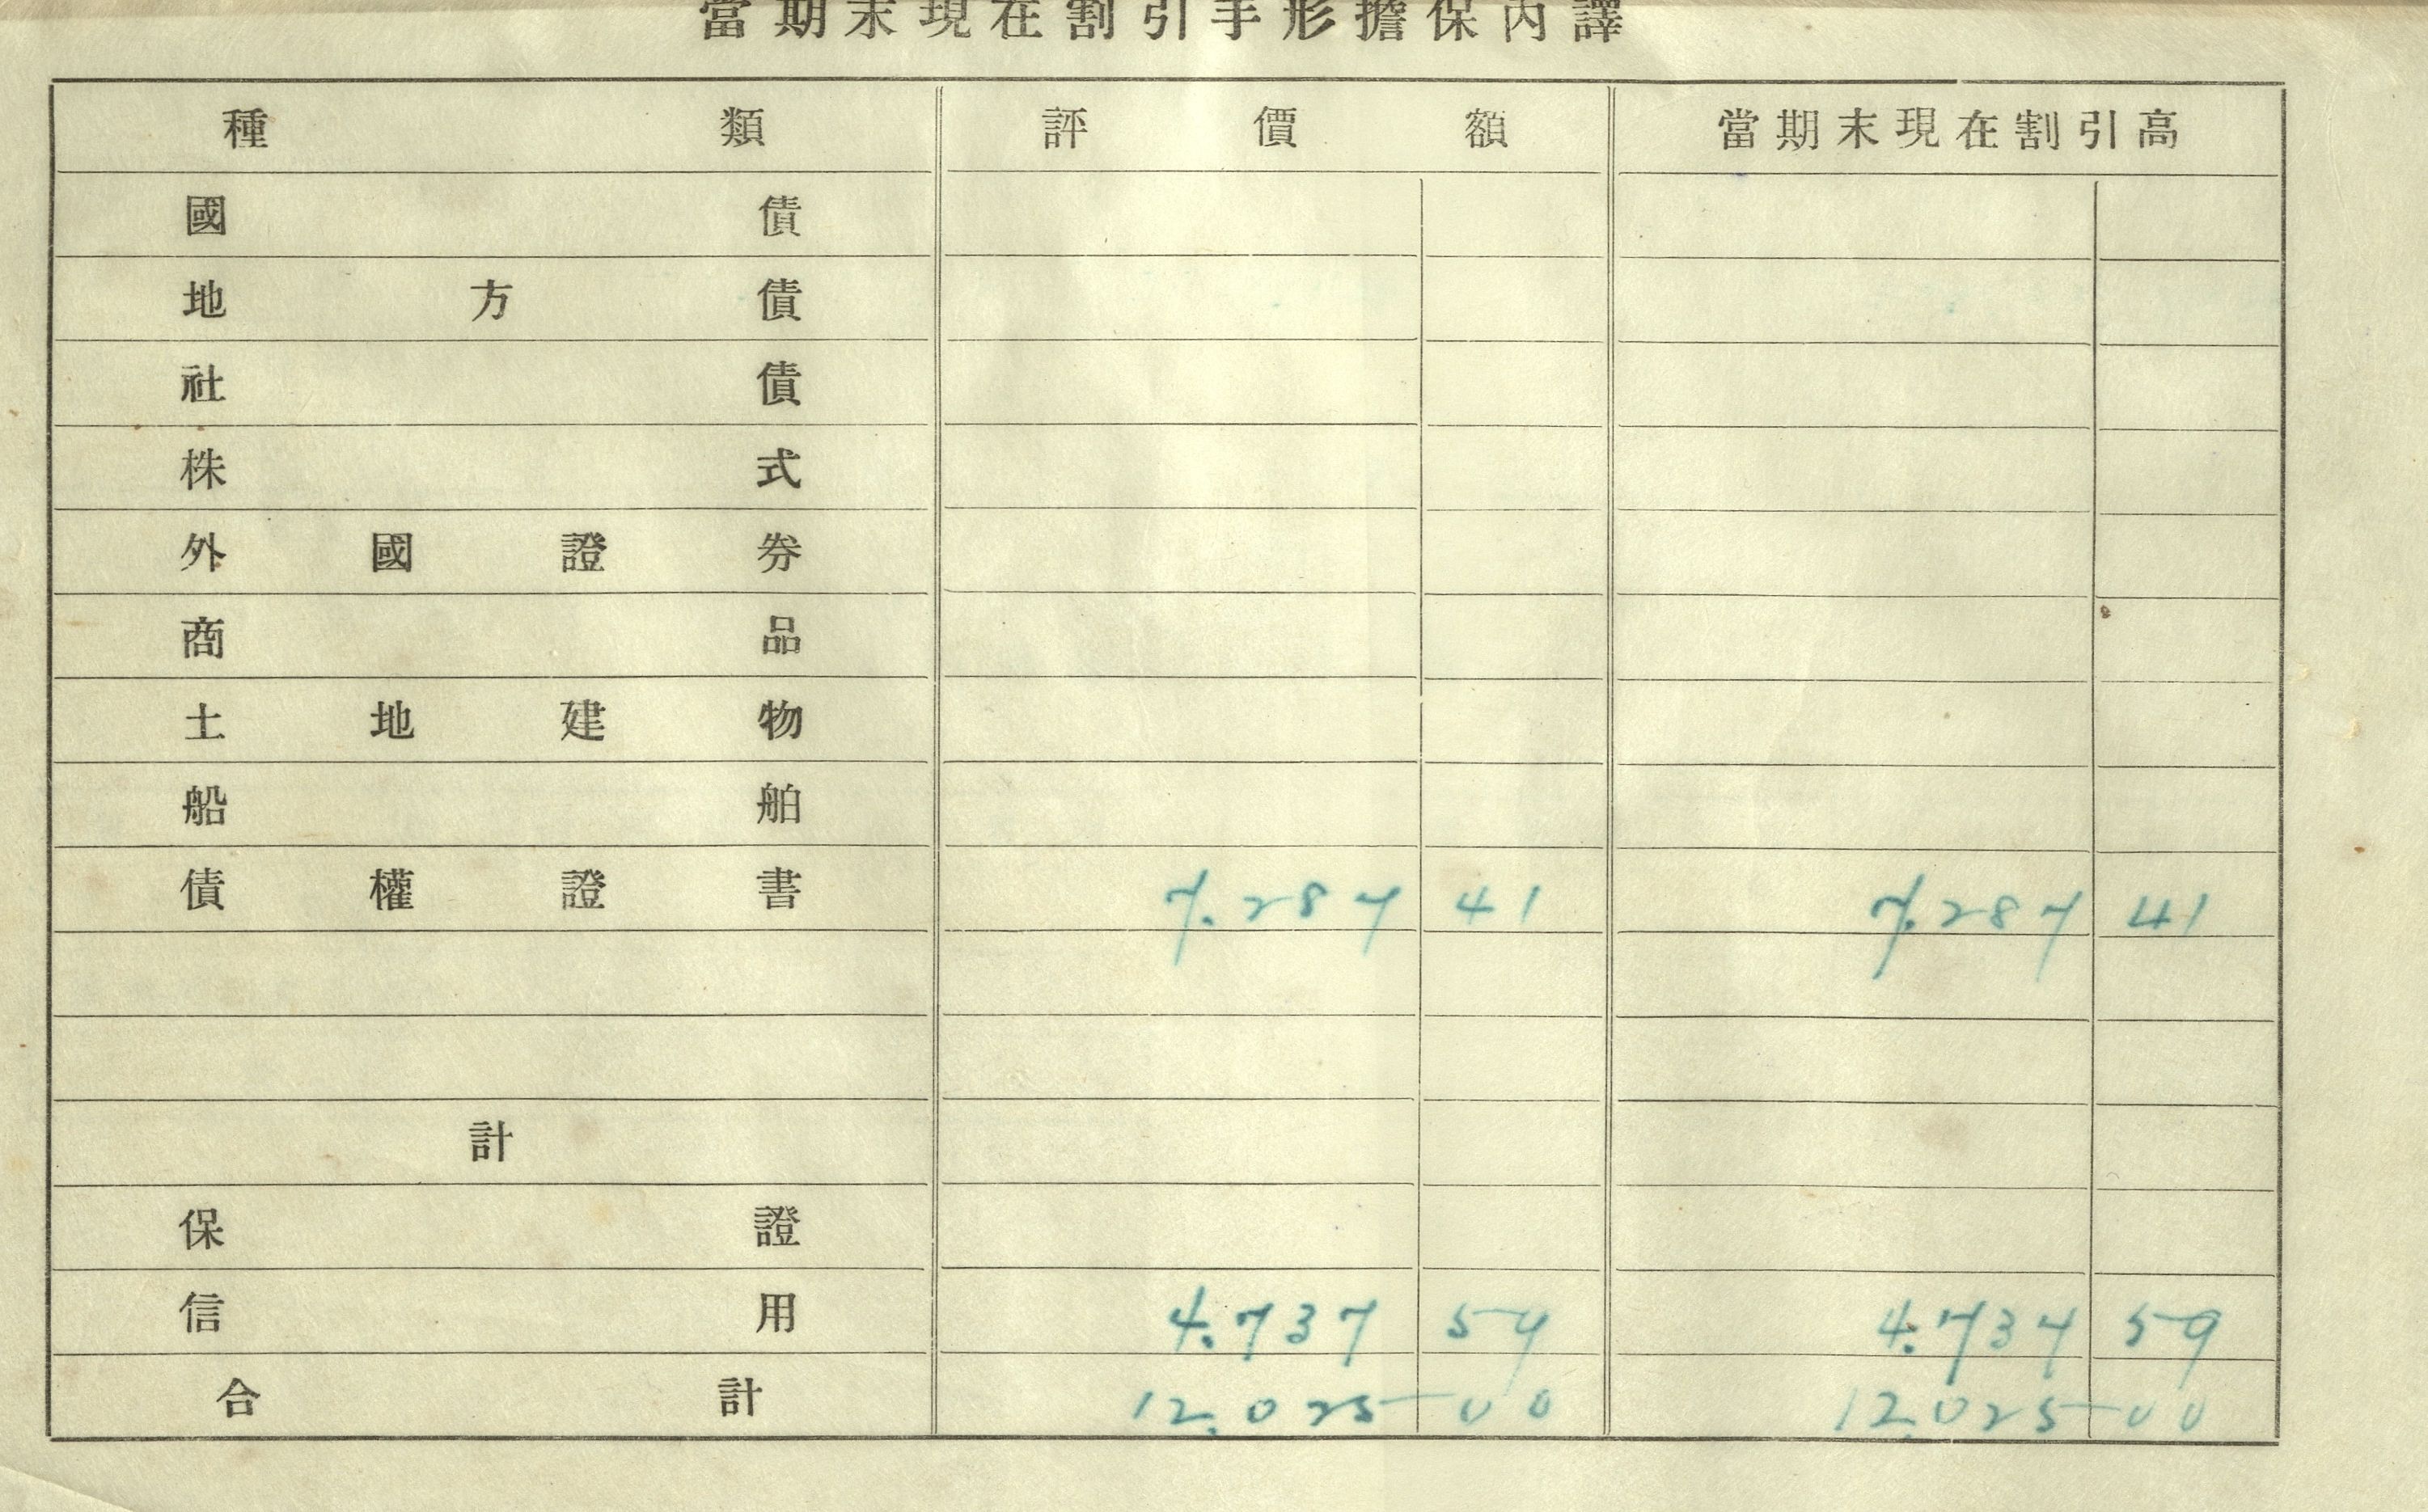 當期末現在割引手形擔保內譯
種類 評價額 當期末現在割引高
國債
地方債
社債
株式
外國證券
商品
土地建物
船舶
債權證書 7.287 41 7.287 41
計
保證
信用 4.737 59 4.737 59
合計 12.025 00 12.025 00